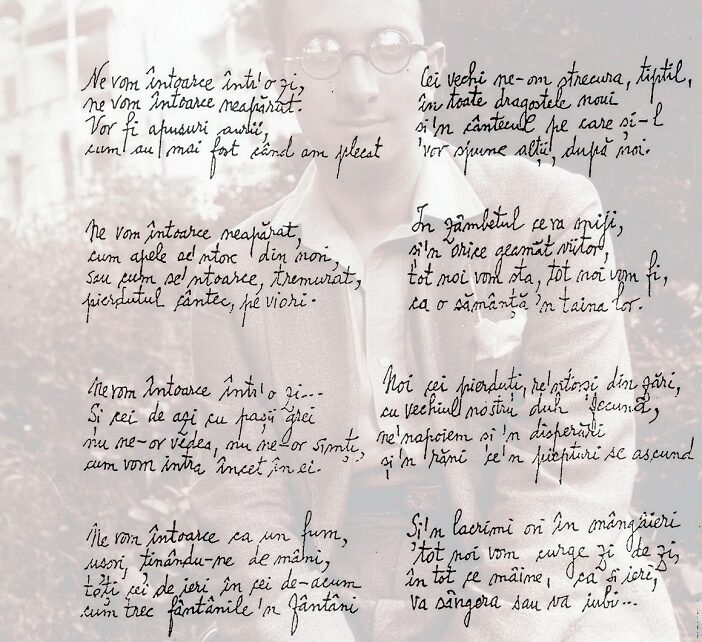 Ne vom întoarce într'o zi,
ne vom întoarce neapărat.
Vor fi apusuri aurii,
cum au mai fost când am plecat
Ne vom întoarce neapărat,
cum apele se'ntorc din nori,
sau cum se'ntoarce, tremurat,
pierdutul cântec, pe viori.
Ne vom întoarce într'o zi...
Și cei de azi cu pașii grei
nu ne-or vedea, nu ne-or simți,
cum vom intra încet în ei.
Ne vom întoarce ca un fum,
ușori, ținându-ne de mâni,
toți cei de ieri în cei de-acum
cum trec fântânile'n fântâni
Cei vechi ne-om strecura, tiptil,
în toate dragostele noui
și'n cântecul pe care și-l
vor spune alții, după noi.
În zâmbetul ce va miji,
și'n orice geamăt viitor,
tot noi vom sta, tot noi vom fi,
ca o sămânță 'n taina lor.
Noi cei pierduți, re'ntorși din zări,
cu vechiul nostru duh fecund,
ne'napoiem și'n disperări
și'n răni ce'n piepturi se ascund
Și'n lacrimi ori în mângâieri
tot noi vom curge zi de zi,
în tot ce mâine, ca și ieri,
va sângera sau va iubi...